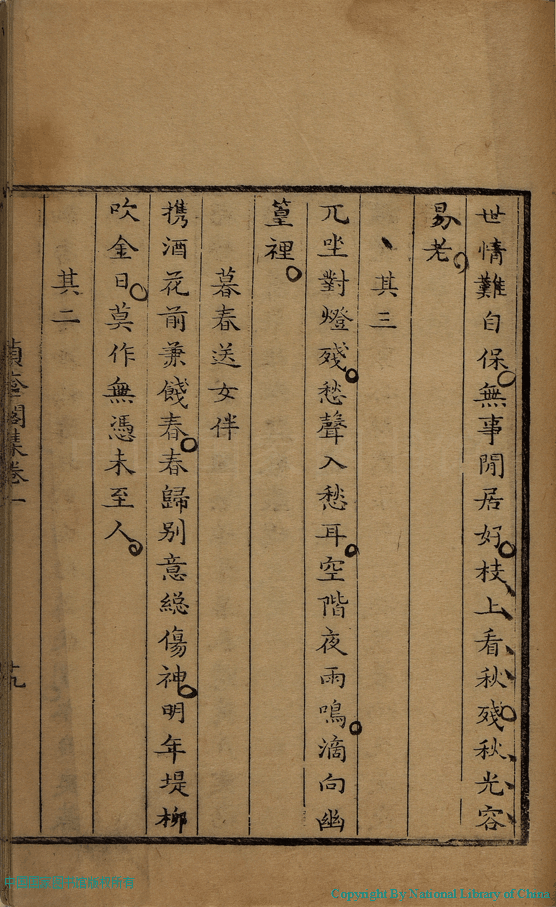 世情難自保無事閒居好枝上看秋殘秋光容
易老
其三
兀坐對燈殘愁聲入愁耳空階夜雨鳴滴向幽
篁裡
暮春送女伴
携酒花前兼餞春春歸别意縂傷神明年堤柳
吹金日莫作無憑未至人
其二
閣集卷一
十九
Copyright By National Library of China